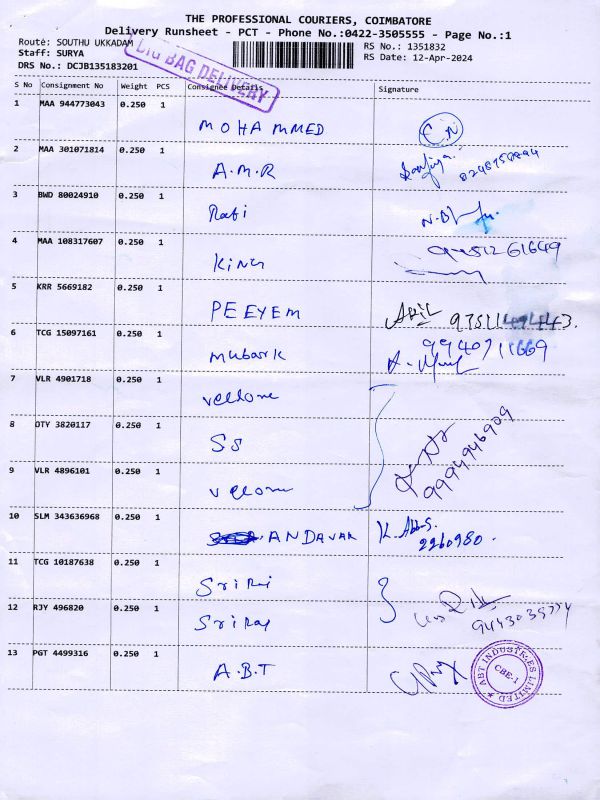 THE PROFESSIONAL COURIERS, COIMBATORE
Delivery Runsheet - PCT - Phone No.:0422-3505555 - Page No.:1
Route: SOUTHU UKKADAM
RS No.: 1351832
Staff: SURYA
RS Date: 12-Apr-2024
DRS No.: DCJB135183201
BIG BAG DELIVERY
S No Consignment No Weight PCS Consignee Details Signature
1 MAA 944773043 0.250 1 MOHAMMED
2 MAA 301071814 0.250 1 A.M.R
3 BWD 80024910 0.250 1 Rafi
4 MAA 108317607 0.250 1 KING 9951261649
5 KRR 5669182 0.250 1 PEEYEM
6 TCG 15097161 0.250 1 mubark 9940711669
7 VLR 4901718 0.250 1 vellore
8 OTY 3820117 0.250 1 SS 9994946909
9 VLR 4896101 0.250 1 vellore
10 SLM 343636968 0.250 1 ANDAVAR 2260980.
11 TCG 10187638 0.250 1
12 RJY 496820 0.250 1 Sriraj
13 PGT 4499316 0.250 1 A.B.T
ABT INDUSTRIES LIMITED
CBE-1